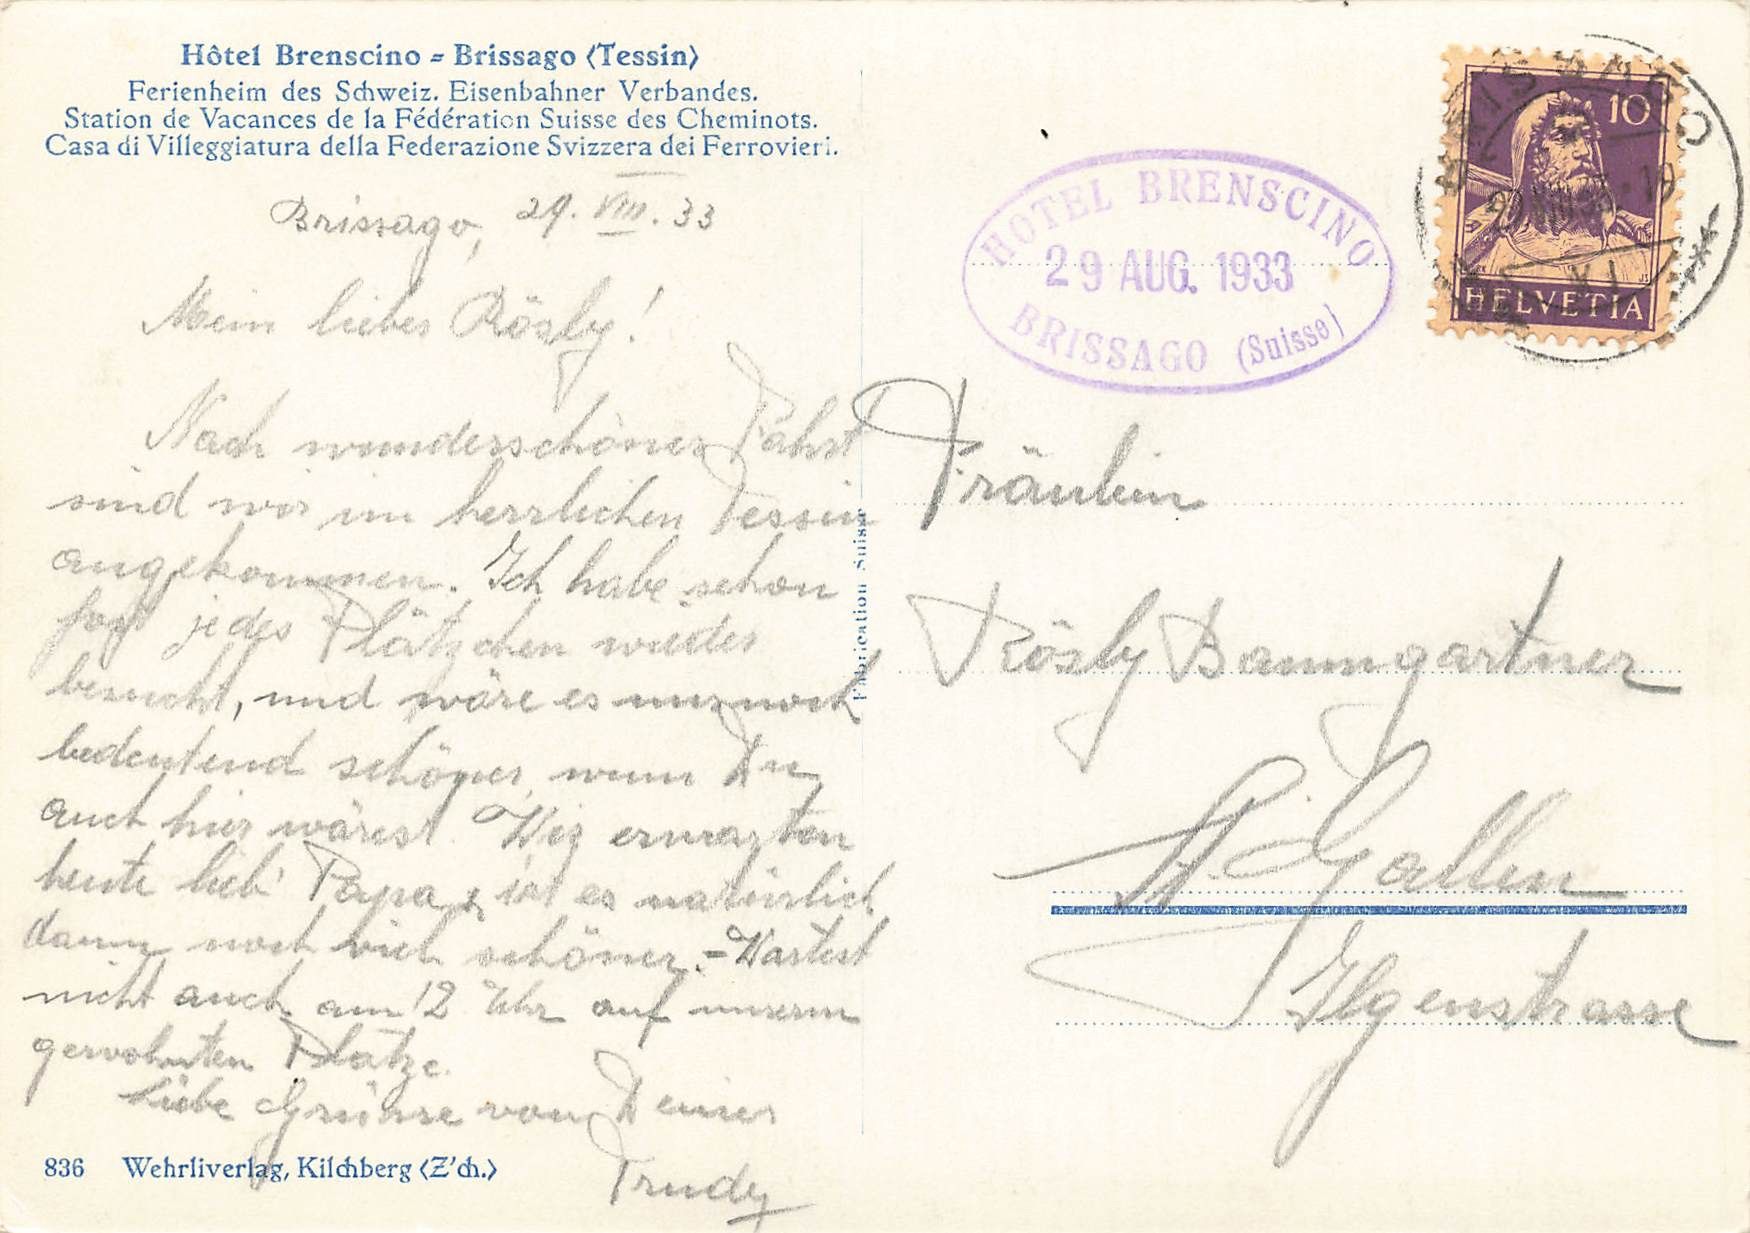 Hôtel Brenscino = Brissago (Tessin)
Ferienheim des Schweiz. Eisenbahner Verbandes.
Station de Vacances de la Fédération Suisse des Cheminots.
Casa di Villeggiatura della Federazione Svizzera dei Ferrovieri.
Brissago, 29. VIII. 33
Mein liebes Rösly!
Nach wunderschöner Fahrt
sind wir im herrlichen Tessin
angekommen. Ich habe schon
fast jedes Plätzchen wieder
besucht, und wäre es nur noch
bedeutend schöner, wenn Du
auch hier wärest. Wir erwarten
heute lieb' Papa, ist es natürlich
dann noch viel schöner. - Wartest
nicht auch am 12 Uhr auf unserm
gewohnten Platze.
Liebe Grüsse von Deiner
Trudy
836 Wehrliverlag, Kilchberg (Z'ch.)
Fabrication Suisse
HOTEL BRENSCINO
29 AUG. 1933
BRISSAGO (Suisse)
BRISSAGO
10
HELVETIA
Fräulein
Rösly Baumgartner
St. Gallen
Ilgenstrasse